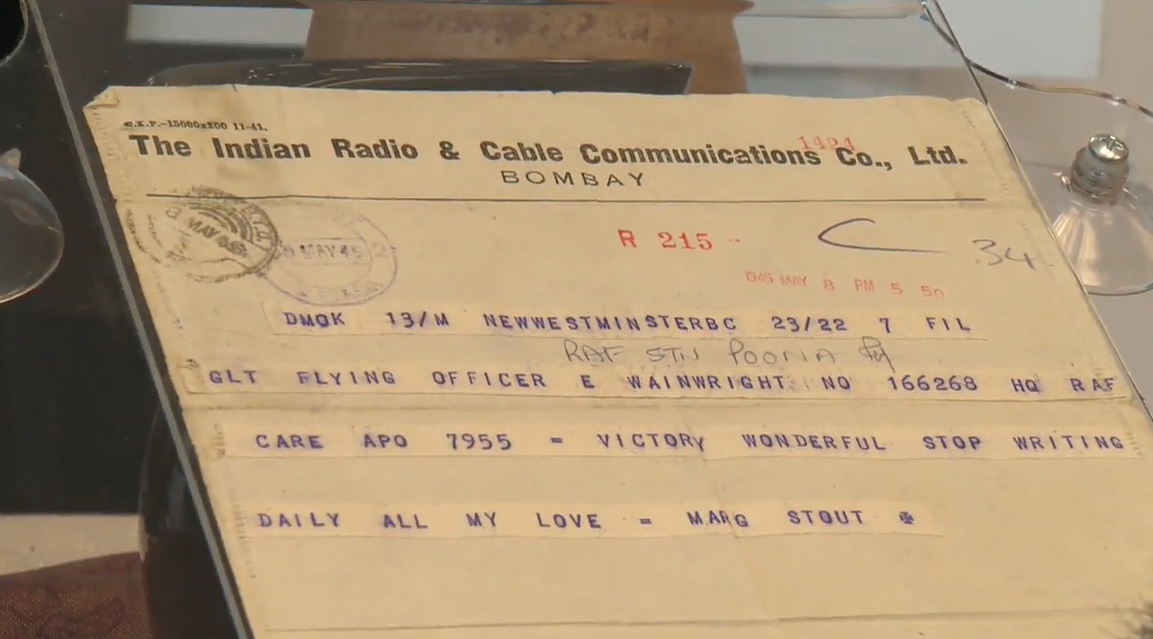 The Indian Radio & Cable Communications Co., Ltd.
1424
BOMBAY
MAY 45
R 215
C 34
1945 MAY 8 PM 5 50
DMQK 13/M NEWWESTMINSTERBC 23/22 7 FIL
RAF STN POONA
GLT FLYING OFFICER E WAINWRIGHT NO 166268 HQ RAF
CARE APO 7955 = VICTORY WONDERFUL STOP WRITING
DAILY ALL MY LOVE = MARG STOUT